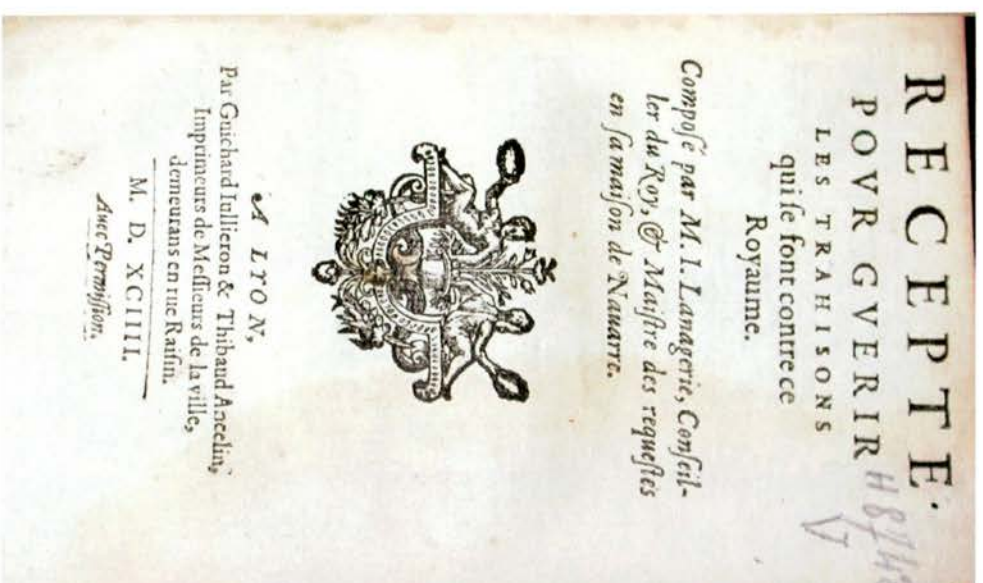 RECEPTE
POVR GVERIR
LES TRAHISONS
qui ſe font contre ce
Royaume.
Compoſé par M. I. Lanagerie, Conſeil-
ler du Roy, & Maiſtre des requeſtes
en ſa maiſon de Nauarre.
A LYON,
Par Guichard Iullieron & Thibaud Ancelin,
Imprimeurs de Meſſieurs de la ville,
demeurans en rue Raiſin.
M. D. XCIIII.
Auec Permiſſion.